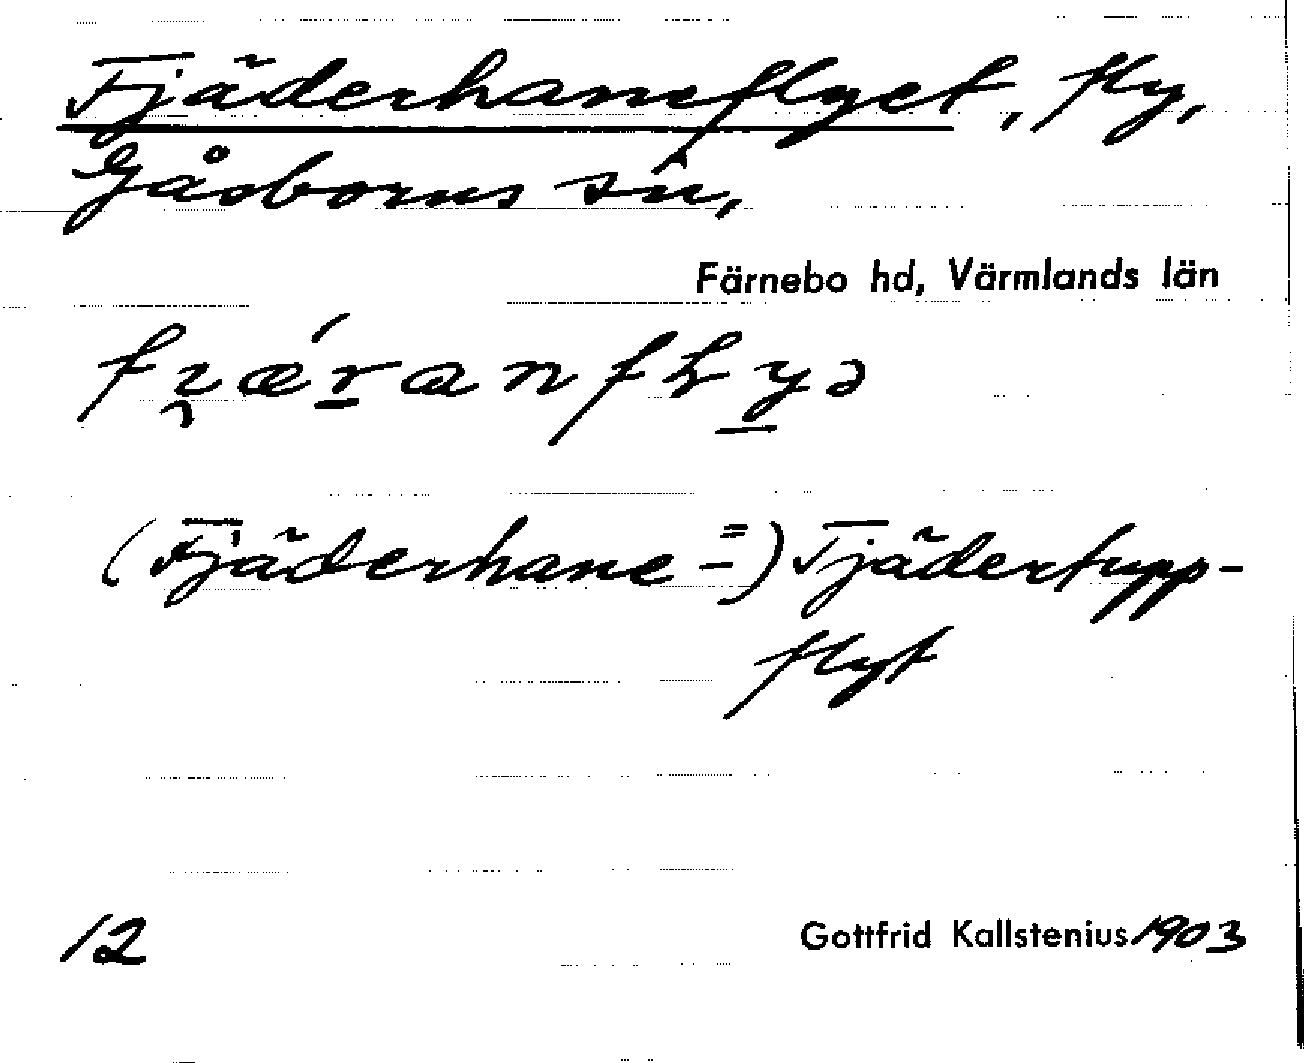 Fjäderhaneflyet, fly,
Gåsborns sn,
Färnebo hd, Värmlands län
(Fjäderhane =) Fjädertupp-
flyt
12 Gottfrid Kallstenius 1903